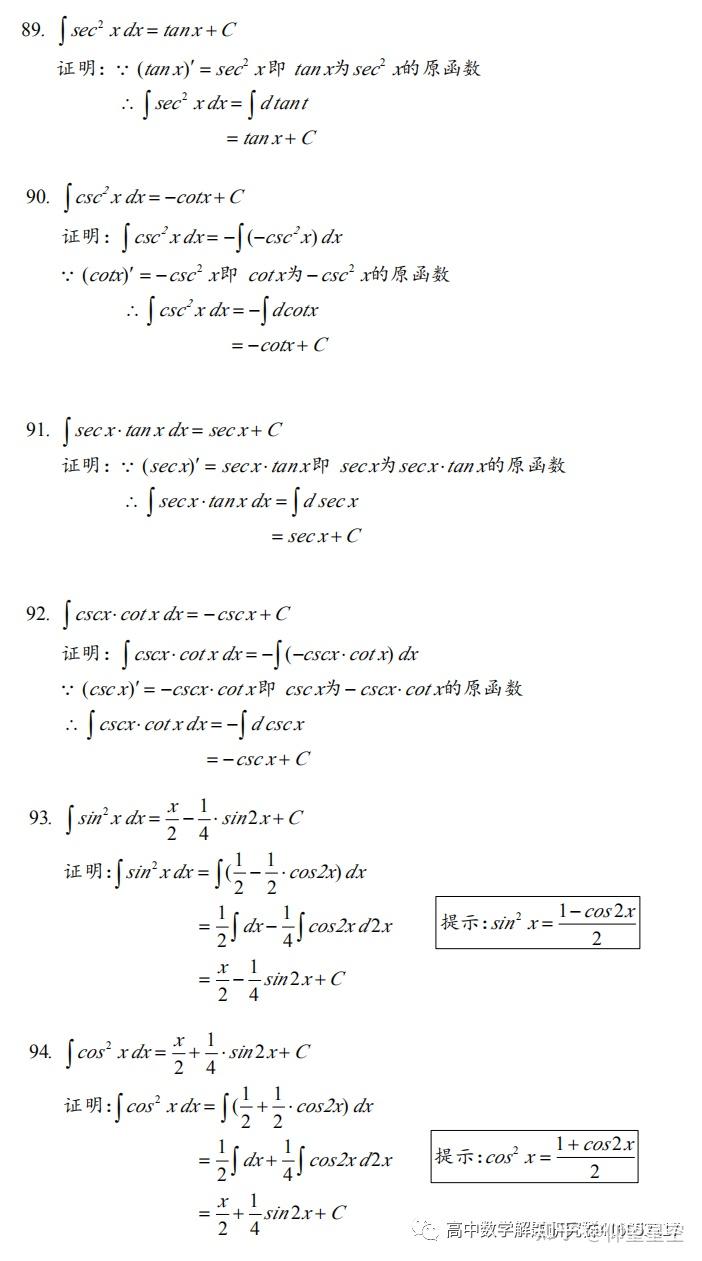 89. ∫sec² x dx = tan x + C
证明: ∵ (tan x)′ = sec² x即 tan x为sec² x的原函数
∴ ∫sec² x dx = ∫d tan t
= tan x + C
90. ∫csc² x dx = −cotx + C
证明: ∫csc² x dx = −∫(−csc² x) dx
∵ (cotx)′ = −csc² x即 cot x为−csc² x的原函数
∴ ∫csc² x dx = −∫dcotx
= −cotx + C
91. ∫sec x · tan x dx = sec x + C
证明: ∵ (sec x)′ = sec x · tan x即 sec x为sec x · tan x的原函数
∴ ∫sec x · tan x dx = ∫d sec x
= sec x + C
92. ∫cscx · cot x dx = −csc x + C
证明: ∫cscx · cot x dx = −∫(−cscx · cot x) dx
∵ (csc x)′ = −cscx · cot x即 csc x为−cscx · cot x的原函数
∴ ∫cscx · cot x dx = −∫d csc x
= −csc x + C
93. ∫sin² x dx = x/2 − 1/4 · sin2x + C
证明:∫sin² x dx = ∫(1/2 − 1/2 · cos2x) dx
= 1/2∫dx − 1/4∫cos2x d2x
提示:sin² x = (1−cos2x)/2
= x/2 − 1/4 sin2x + C
94. ∫cos² x dx = x/2 + 1/4 · sin2x + C
证明:∫cos² x dx = ∫(1/2 + 1/2 · cos2x) dx
= 1/2∫dx + 1/4∫cos2x d2x
提示:cos² x = (1+cos2x)/2
= x/2 + 1/4 sin2x + C
高中数学解题研究